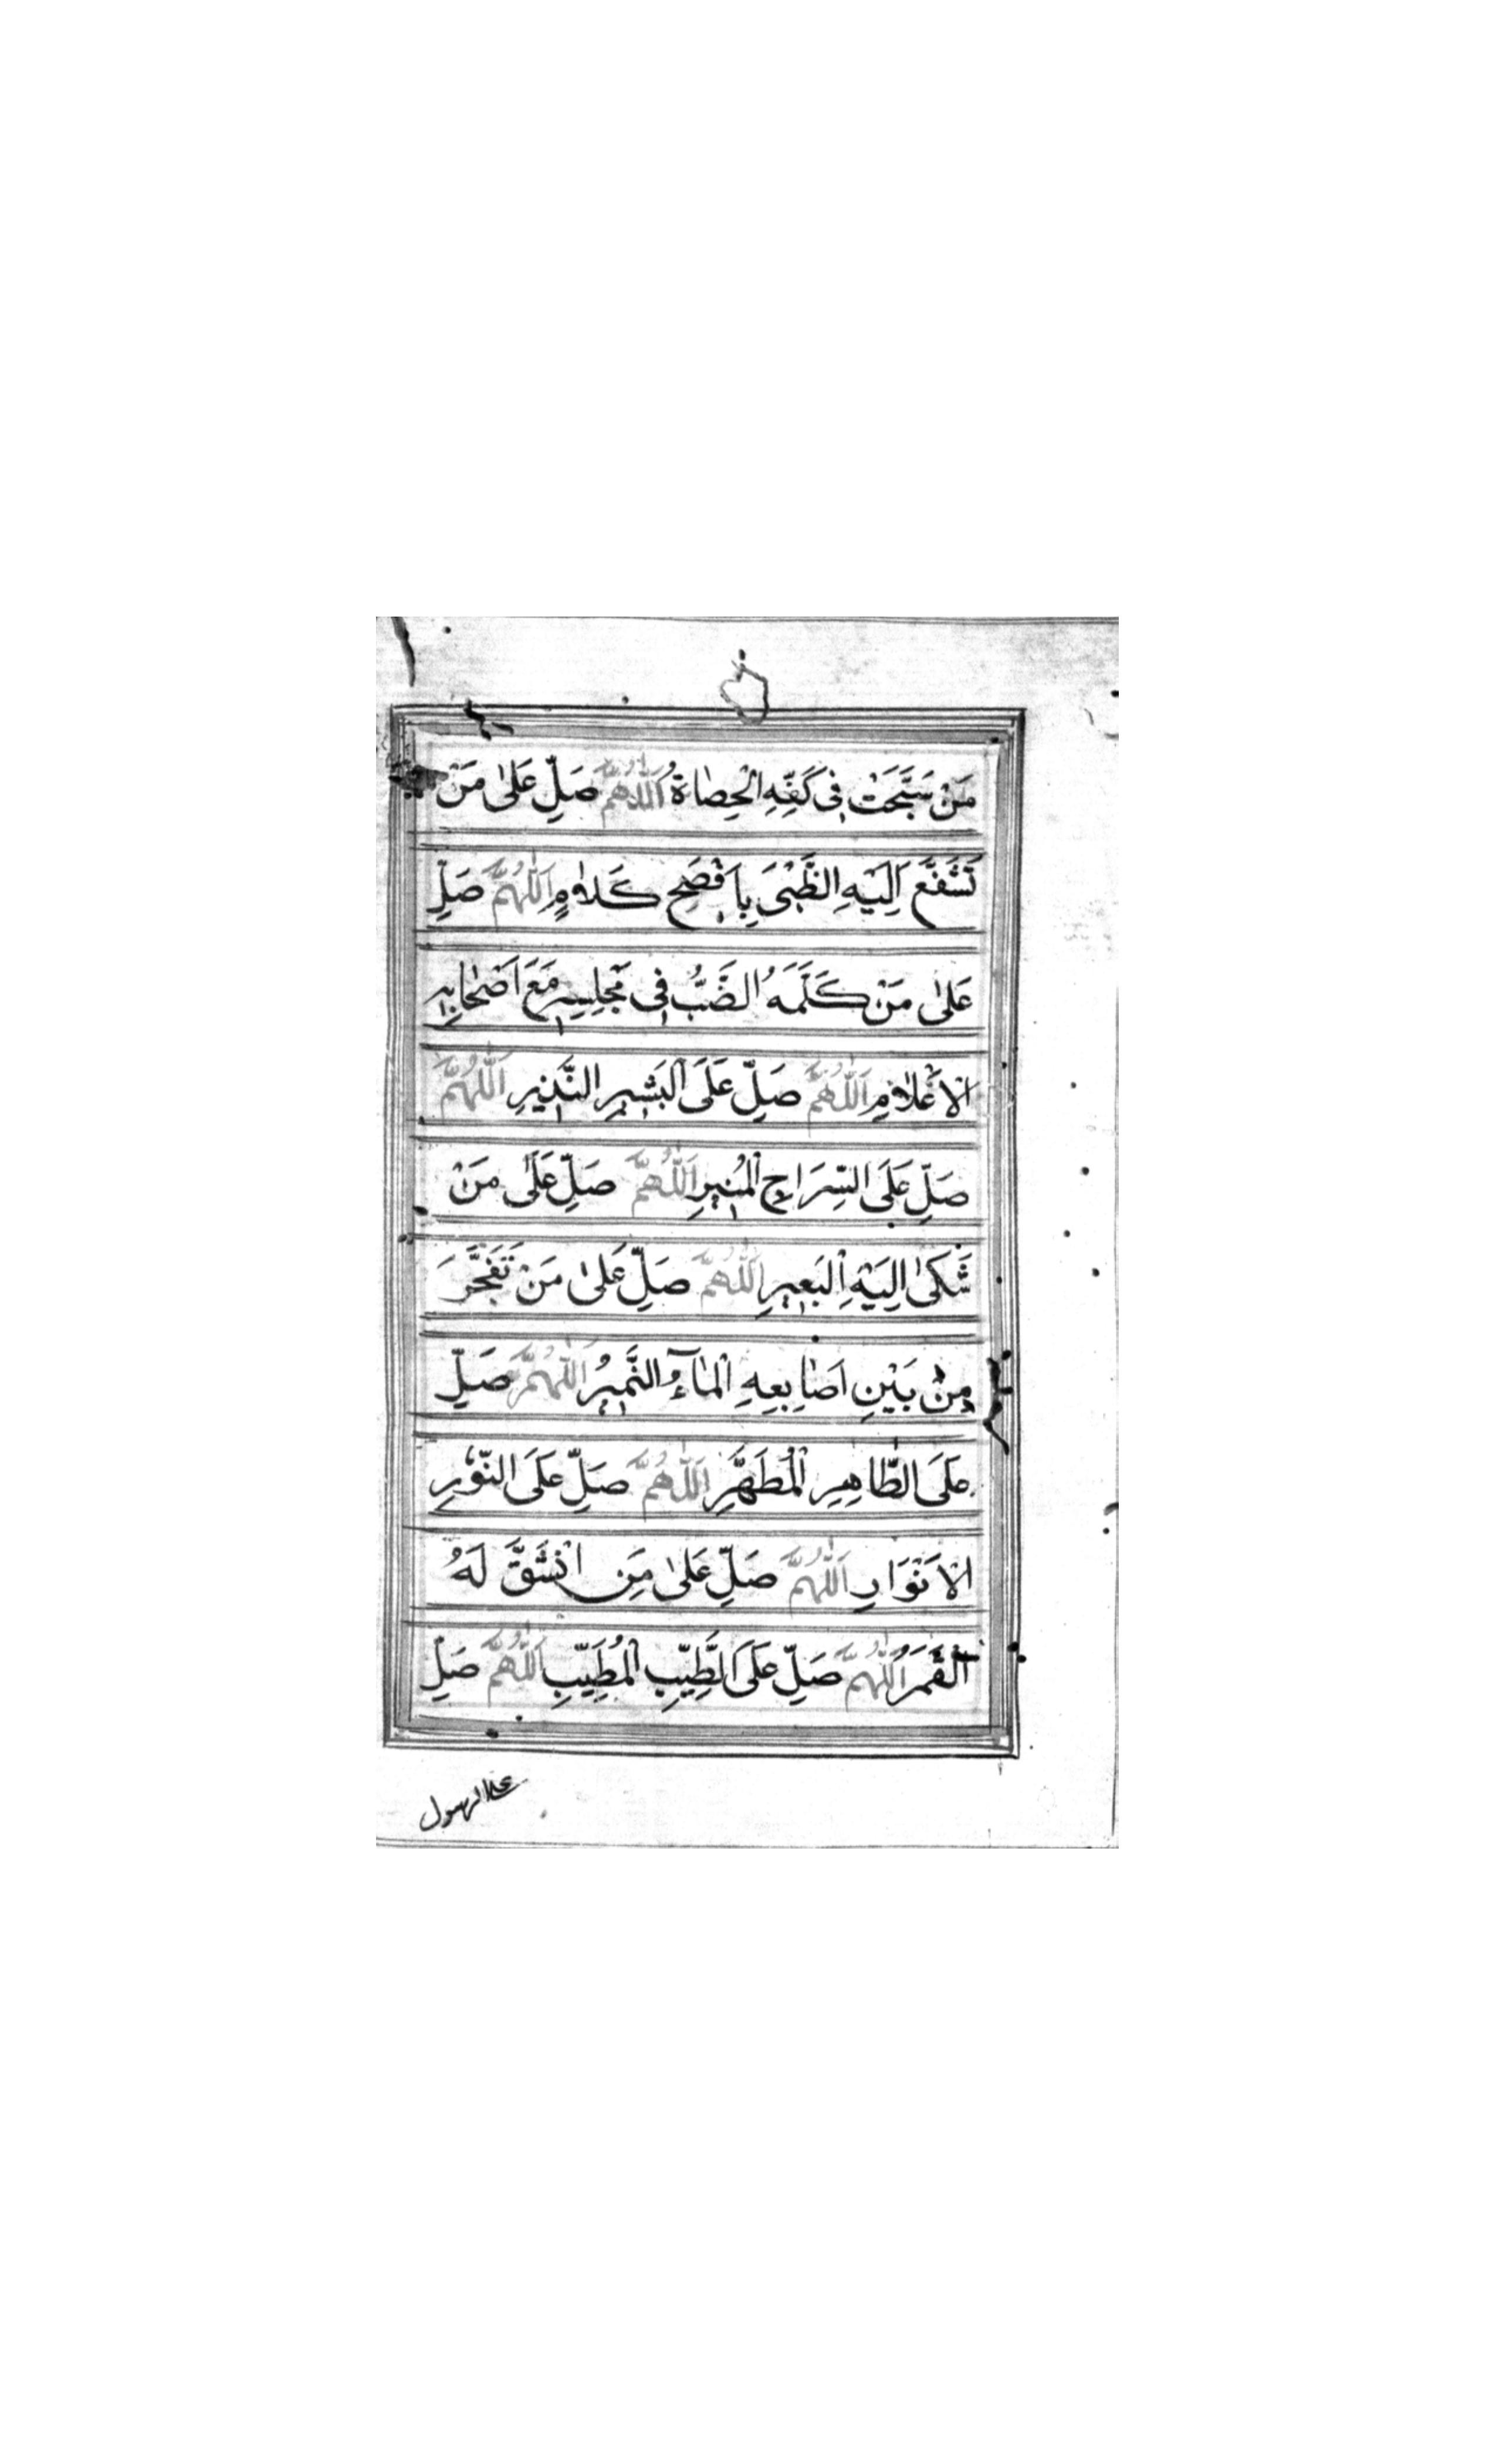 مَنْ سَبَّحَتْ فِي كَفِّهِ الْحِصَاةُ اَللّٰهُمَّ صَلِّ عَلٰى مَنْ
تَشَفَّعَ اِلَيْهِ الظَّبْىَ بِاَفْصَحِ كَلَامٍ اَللّٰهُمَّ صَلِّ
عَلٰى مَنْ كَلَّمَهُ الضَّبُّ فِى مَجْلِسِهٖ مَعَ اَصْحَابِهِ
الْاَعْلَامِ اَللّٰهُمَّ صَلِّ عَلَى الْبَشِيْرِ النَّذِيْرِ اَللّٰهُمَّ
صَلِّ عَلَى السِّرَاجِ الْمُنِيْرِ اَللّٰهُمَّ صَلِّ عَلٰى مَنْ
شَكٰى اِلَيْهِ الْبَعِيْرِ اَللّٰهُمَّ صَلِّ عَلٰى مَنْ تَفَجَّرَ
مِنْ بَيْنِ اَصَابِعِهِ الْمَآءُ النَّمِيْرُ اَللّٰهُمَّ صَلِّ
عَلَى الطَّاهِرِ الْمُطَهَّرِ اَللّٰهُمَّ صَلِّ عَلَى النُّوْرِ
الْاَنْوَارِ اَللّٰهُمَّ صَلِّ عَلٰى مَنِ انْشَقَّ لَهُ
الْقَمَرُ اَللّٰهُمَّ صَلِّ عَلَى الطَّيِّبِ الْمُطَيِّبِ اَللّٰهُمَّ صَلِّ
على الرسول